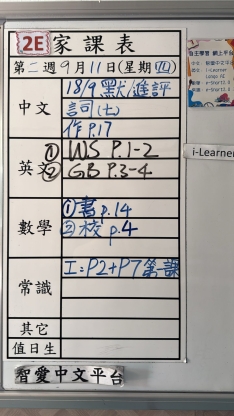 2E 家課表
第二週9月11日(星期四)
中文
18/9 默/進評
詞(七)
作 P.17
英文
① WS P.1-2
② GB P.3-4
i-Learner
數學
① 書 p.14
② 校 p.4
常識
工=P2+P7 第課
其它
值日生
智愛中文平台